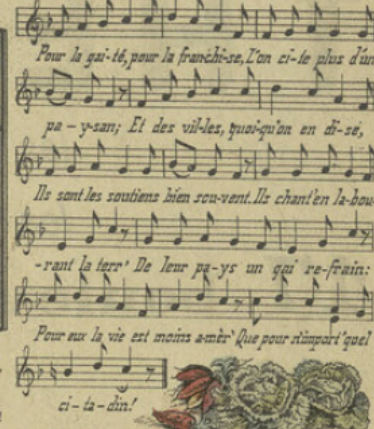 Pour la gai-té, pour la franchi-se, L'on ci-te plus d'un
pa-y-san; Et des vil-les, quoiqu'on en di-se,
Ils sont les soutiens bien sou-vent. Ils chant'en la-bou-
-rant la terr' De leur pa-ys un gai re-frain:
Pour eux la vie est moins a-mèr' Que pour n'import' quel
ci-ta-din!